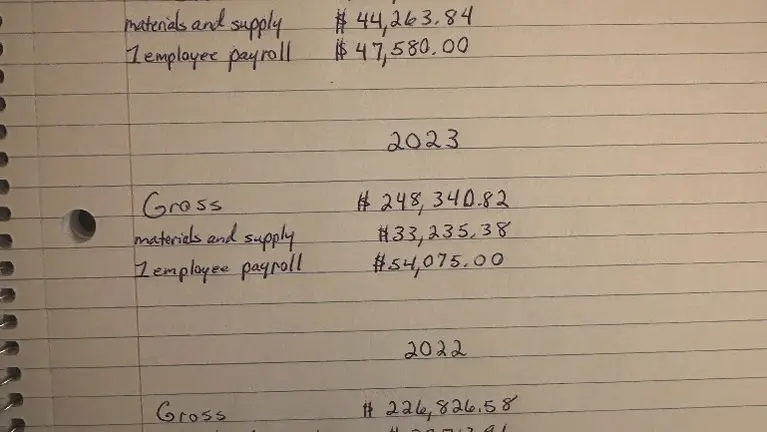 materials and supply $ 44,263.84
1 employee payroll $ 47,580.00
2023
Gross $ 248,340.82
materials and supply $33,235.38
1 employee payroll $54,075.00
2022
Gross $ 226,826.58